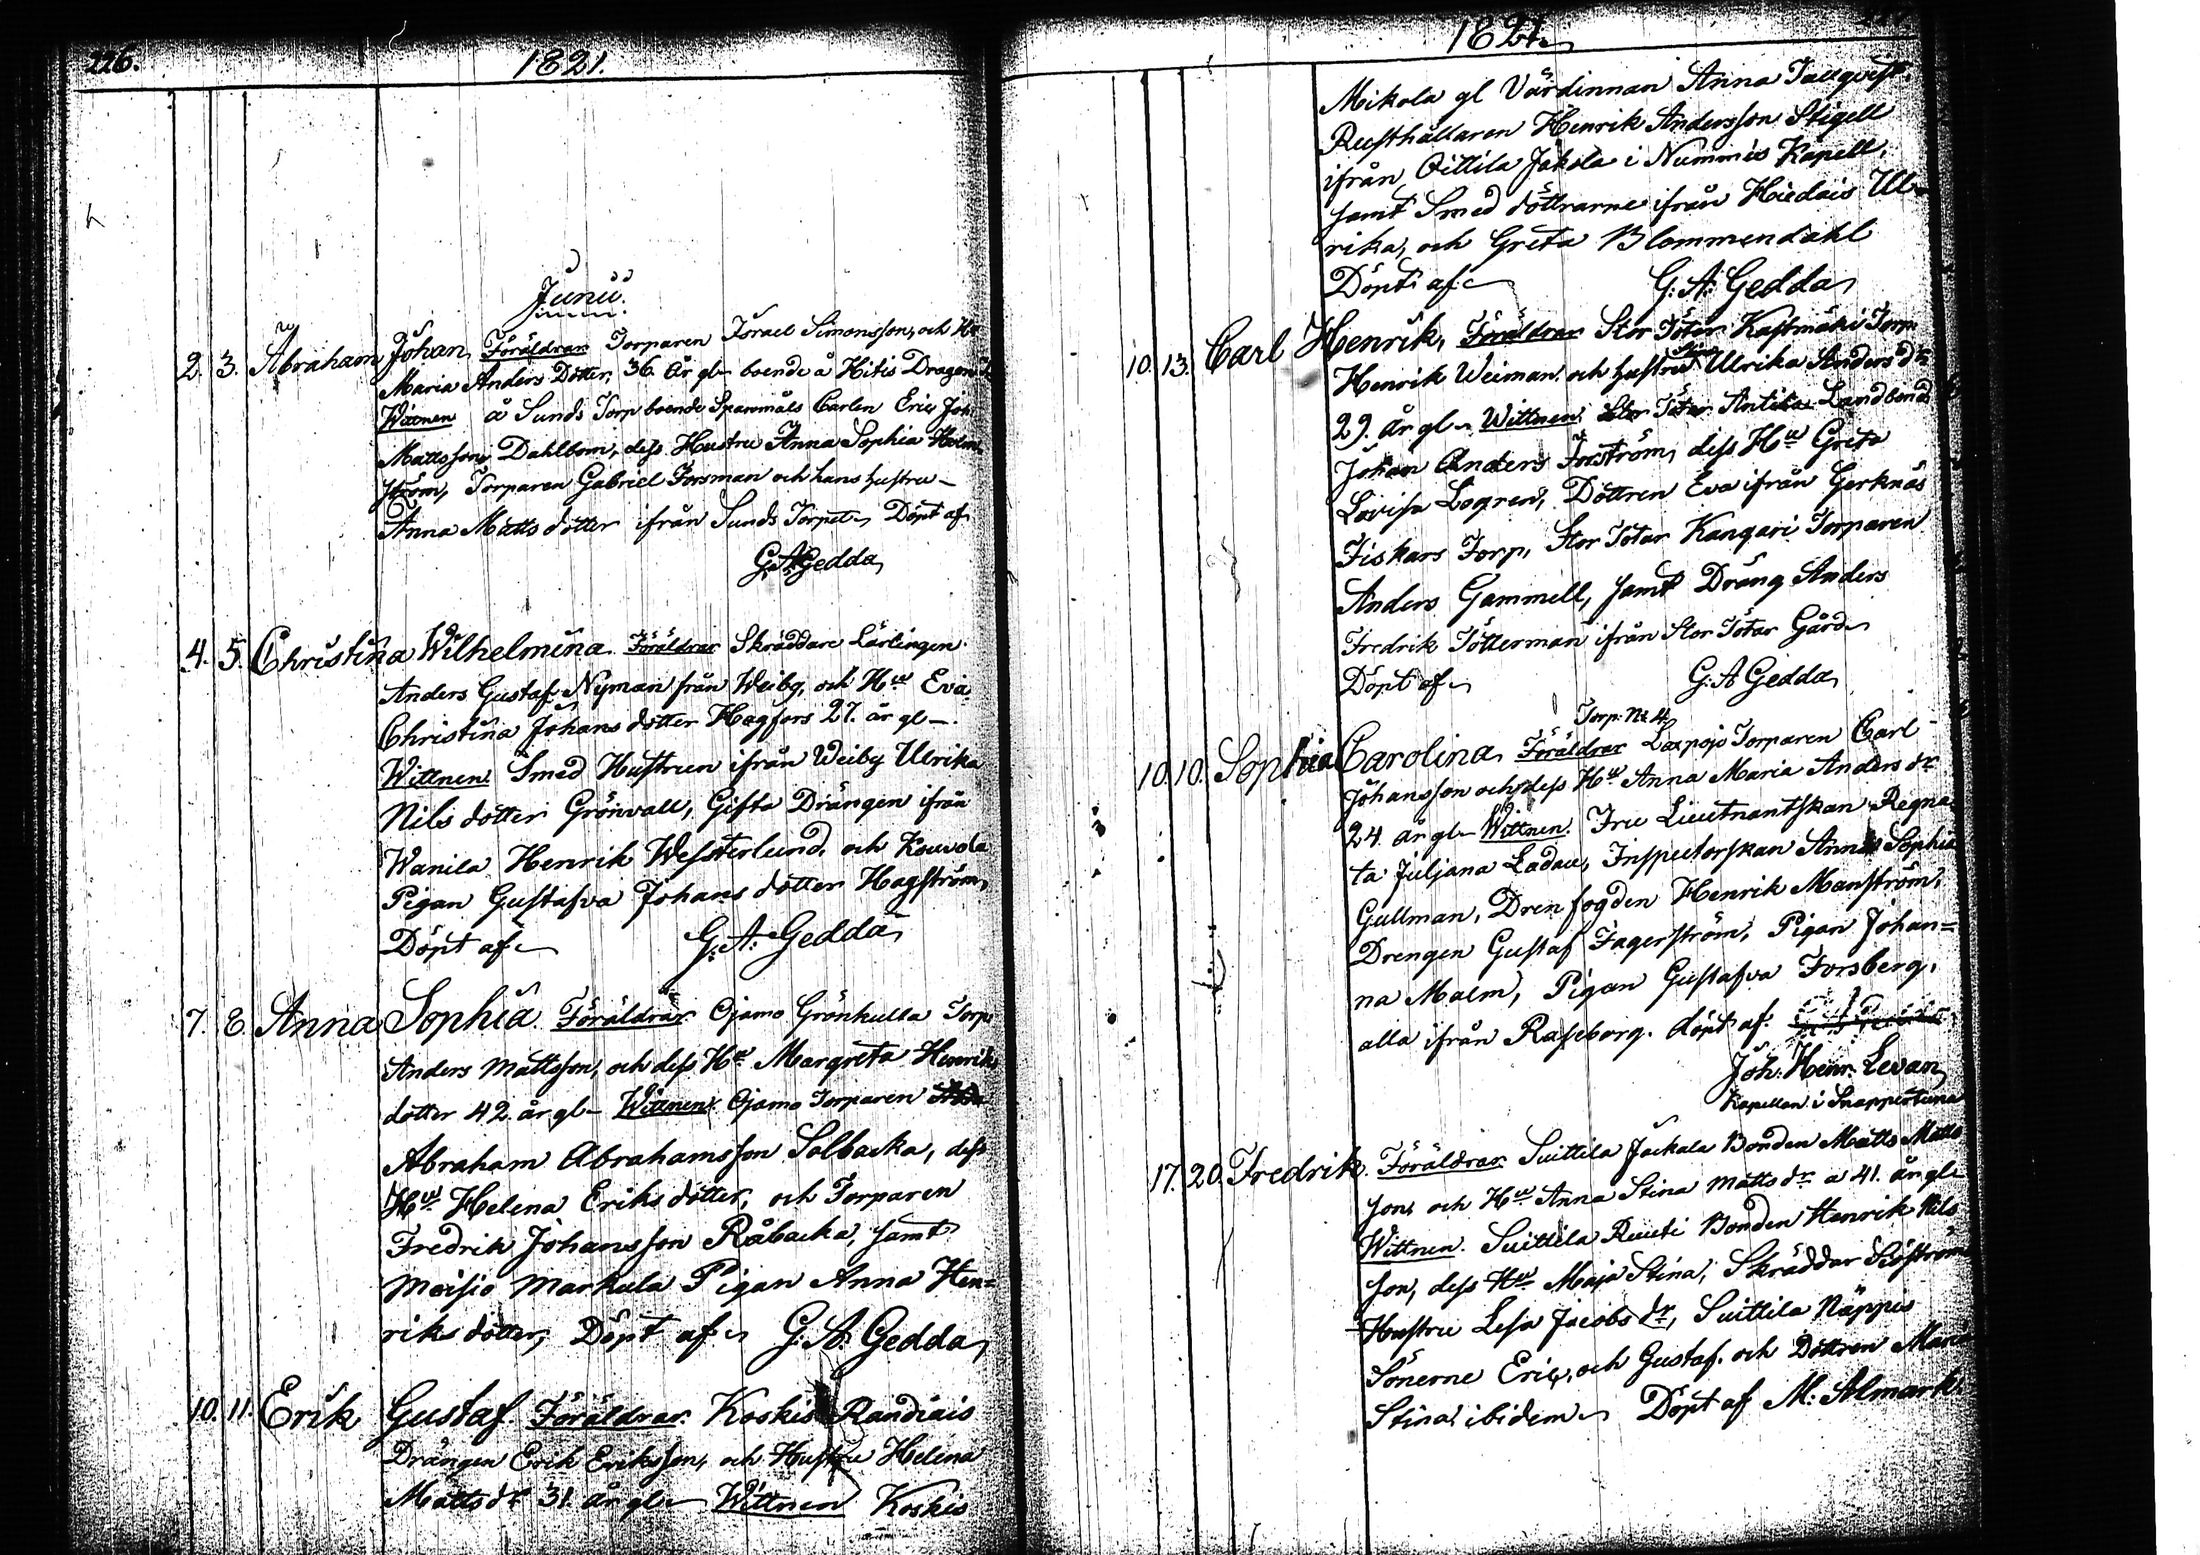 226.
1821.
Junii.
2. 3. Abraham Johan, Föräldrar Torparen Israel Simonsson, och Hu
Maria Anders Dotter, 36. år gl. boende å Hitis Dragon
Wittnen å Sunds Torp boende Spanmåls Carlen Eric Joh.
Mattsson Dahlbom, dess Hustru Anna Sophia Holm
ström, Torparen Gabriel Forsman och hans hustru
Anna Matts dotter ifrån Sunds Torpet, Döpt af
G. A. Gedda
4. 5. Christina Wilhelmina. Föräldrar Skräddare Lärlingen
Anders Gustaf Nyman från Weiby, och Hu Eva
Christina Johans dotter Hagfors 27. år gl.
Wittnen Smed Hustrun ifrån Weiby Ulrika
Nils dotter Grönvall, Gifta Drängen ifrån
Wanila Henrik Westerlund, och Kouvola
Pigan Gustafva Johans dotter Hagström,
Döpt af G. A. Gedda
7. 8. Anna Sophia. Föräldrar Ojamo Grönkulla Torp.
Anders Mattsson, och dess Hu Margreta Henriks
dotter 42 år gl. Wittnen Ojamo Torparen
Abraham Abrahamsson Solbacka, dess
Hu Helena Eriks dotter, och Torparen
Fredrik Johansson Råbacka, samt
Moisio Markula Pigan Anna Hen=
riks dotter, Döpt af G. A. Gedda
10. 11. Erik Gustaf. Föräldrar Koskis Randiais
Drängen Erik Eriksson, och Hustru Helena
Matts dr 31. år gl. Wittnen Koskis
1821.
Mikola gl Värdinnan Anna Tallqvist
Rusthållaren Henrik Andersson Stigell
ifrån Oittila Jakola i Nummis Kapell,
samt Smed döttrarne ifrån Hiedais Ul=
rika, och Greta Blommendahl
Döpt af G. A. Gedda
10. 13. Carl Henrik, Föräldrar Stor Totar Kastmäki Torp.
Henrik Weiman och hustru Stina Ulrika Anders dr
29. år gl. Wittnen Stor Totar Antila Landbond.
Johan Anders Forström, dess Hu Greta
Lovisa Logren, Dottren Eva ifrån Gerknäs
Fiskars Torp, Stor Totar Kangari Torparen
Anders Gammell, samt Dräng Anders
Fredrik Tötterman ifrån Stor Totar Gård
Döpt af G. A Gedda
Torp. No 4.
10. 10. Sophia Carolina, Föräldrar Laxpojo Torparen Carl
Johansson och dess Hu Anna Maria Anders dr
24 år gl. Wittnen. Fru Lieutnantskan Regna
ta Juljana Ladau, Inspectorskan Anna Sophia
Gullman, Drenfogden Henrik Manström,
Drengen Gustaf Fagerström, Pigan Johan=
na Malm, Pigan Gustafva Forsberg,
alla ifrån Raseborg. döpt af.
Joh. Henr. Levan
Kapellan i Snappertuna
17. 20. Fredrik. Föräldrar Suittila Jackala Bonden Matts Matts
son, och Hu Anna Stina Matts dr a 41. år gl.
Wittnen. Suittila Ruuti Bonden Henrik Nils
son, dess Hu Maja Stina, Skräddar Sjöströms
Hustru Lesa Jacobs dr, Suittila Näppis
Sönerne Eric, och Gustaf. och Dottren Maria
Stina, ibidem Döpt af M. Almark.